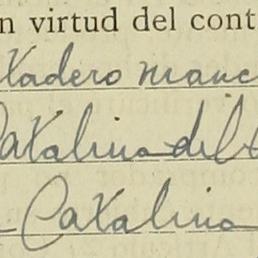 n virtud del cont
tadero manc
Catalina del
Catalina